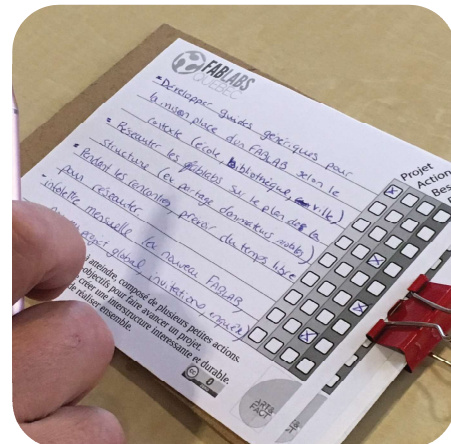 FABLABS
QUÉBEC
Développer guides génériques pour
la mise en place d'un FABLAB selon le
contexte (école, bibliothèque, ville)
Réseauter les fablabs sur le plan de la
structure (ex partage
Pendant les rencontres prévoir du temps libre
pour réseauter
infolettre mensuelle (ex nouveau FABLAB
projet global, invitations, enquête)
Projet
Action
Bes
) atteindre, composé de plusieurs petites actions.
objectifs pour faire avancer un projet.
créer une interstructure interessante et durable.
de réaliser ensemble.
cc
0
ART&
FACT
ART&
FACT